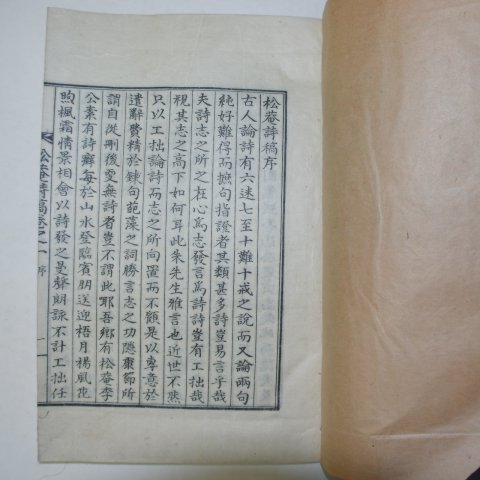 松菴詩稿序
古人論詩有六迷七至十難十戒之說而又論兩句
純好難得而摭句指證者其類甚多詩豈易言乎哉
夫詩志之所之在心爲志發言爲詩詩豈有工拙哉
視其志之高下如何耳此朱先生雅言也近世不然
只以工拙論詩而志之所向置而不顧是以專意於
遣辭費精於鍊句葩藻之詞勝言志之功隱康節所
謂自從刪後更無詩者豈不謂此耶吾鄕有松菴李
公素有詩癖每於山水登臨賓朋送迎梧月楊風花
煦楓霜情景相會以詩發之曼聲朗詠不計工拙任
松菴詩稿卷之一
序